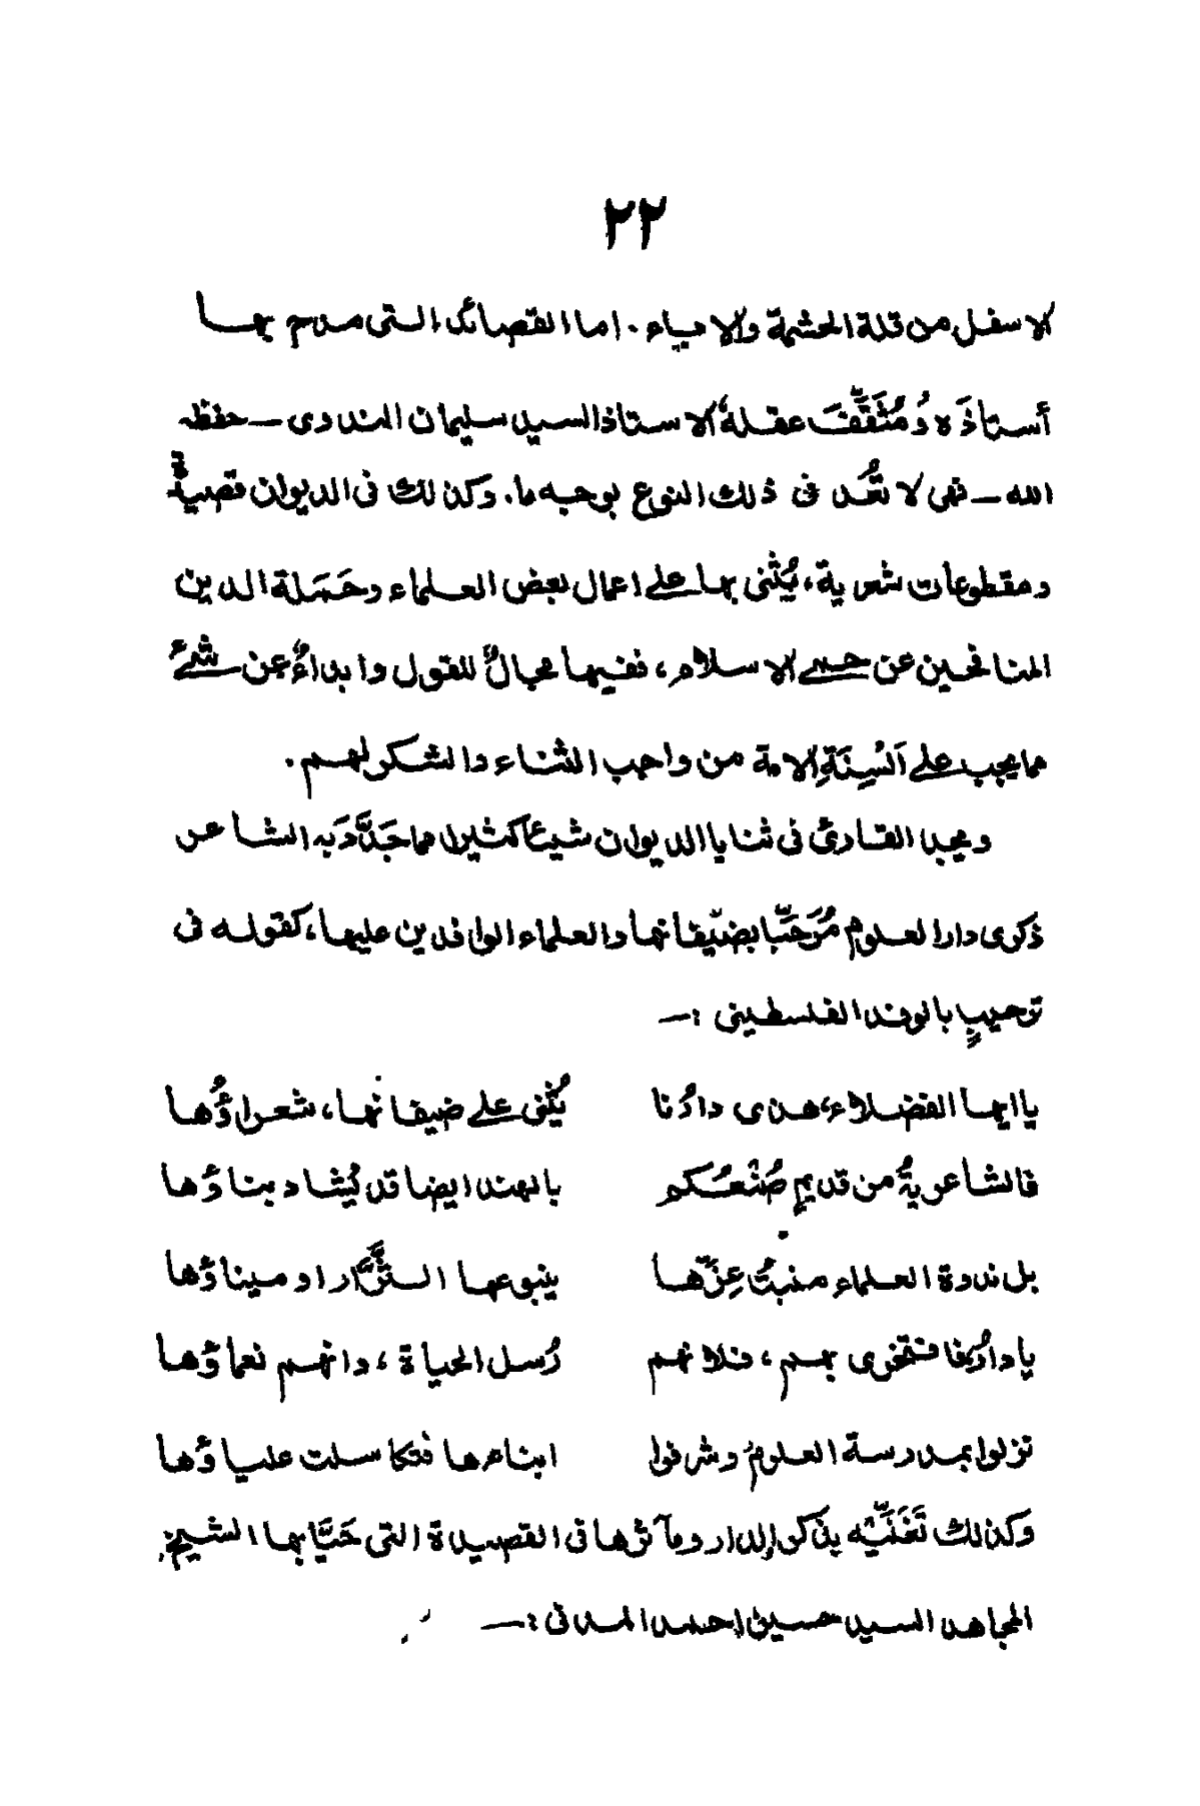 ٢٢
الاسفل من قلة الحشمة والاحياء. اما القصائد التى مدح بها
أستاذَه ومُثَقِّفَ عقله الاستاذ السيد سليمان الندوى — حفظه
الله — فهى لا تُعَد فى ذلك النوع بوجه ما. وكذلك فى الديوان قصيدةٌ
ومقطوعات شعرية، يُثْنى بها على اعمال بعض العلماء وحَمَلة الدين
المنافحين عن حمى الاسلام، ففيها مجالٌ للقول وابداءٌ عن شئ
مما يجب على اَلسُنِةِ الامة من واجب الثناء والشكر لهم.
ويجد القارئ فى ثنايا الديوان شيئا كثيرا مما جَدَّدَ به الشاعر
ذكرى دار العلوم مُرَحِّبا بضيفانها والعلماء الوافدين عليها، كقوله فى
ترحيبٍ بالوفد الفلسطينى :—
يا ايها الفضلاء، هذى دارُنا يُثْنى على ضيفانها، شعراؤُها
فالشاعريةُ من قديمٍ صُنْعُكم بالهند ايضا قد يُشاد بناؤُها
بل ندوة العلماء منبتُ عِزِّها ينبوعها الثَّرَّار او ميناؤُها
يا دارُنا فتفخرى بهم، فلانهم رُسل الحياة، وانهم نعماؤُها
نزلوا بمدرسة العلوم وشرفوا ابناءها فتكاسلت علياؤُها
وكذلك تَغَنِّيْه بذكر الدار ومآثرها فى القصيدة التى حَيَّا بها الشيخ
المجاهد السيد حسين احمد المدنى :—